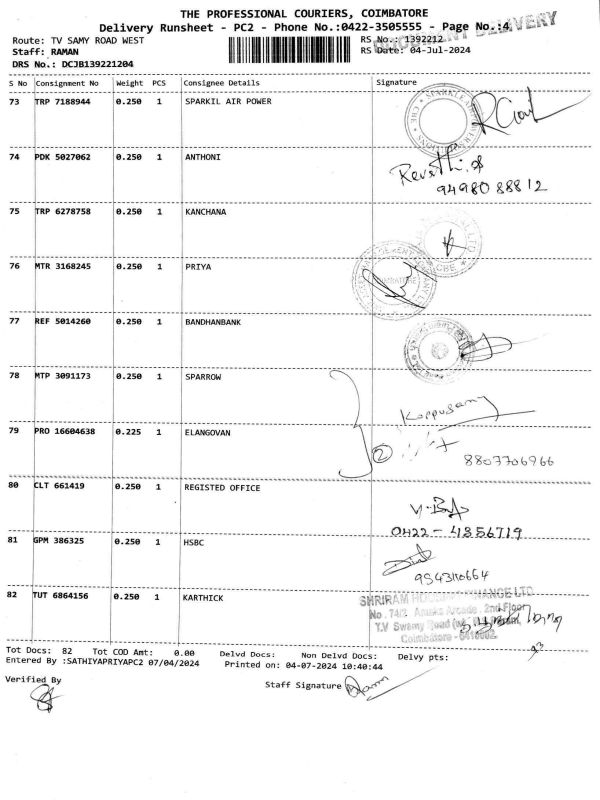 THE PROFESSIONAL COURIERS, COIMBATORE
Delivery Runsheet - PC2 - Phone No.:0422-3505555 - Page No.:4
DELIVERY
Route: TV SAMY ROAD WEST RS No.: 1392212
Staff: RAMAN RS Date: 04-Jul-2024
DRS No.: DCJB139221204
S No Consignment No Weight PCS Consignee Details Signature
73 TRP 7188944 0.250 1 SPARKIL AIR POWER
74 PDK 5027062 0.250 1 ANTHONI
Revathi
9498088812
75 TRP 6278758 0.250 1 KANCHANA
76 MTR 3168245 0.250 1 PRIYA
77 REF 5014260 0.250 1 BANDHANBANK
78 MTP 3091173 0.250 1 SPARROW
Karppusamy
79 PRO 16604638 0.225 1 ELANGOVAN
2
8807706966
80 CLT 661419 0.250 1 REGISTED OFFICE
0422 - 4356719
81 GPM 386325 0.250 1 HSBC
9543110664
82 TUT 6864156 0.250 1 KARTHICK
SHRIRAM HOUSING FINANCE LTD
No. 74/2 Arcade, 2nd Floor
T.V Swamy Road
Coimbatore - 641002.
Tot Docs: 82 Tot COD Amt: 0.00 Delvd Docs: Non Delvd Docs: Delvy pts:
Entered By :SATHIYAPRIYAPC2 07/04/2024 Printed on: 04-07-2024 10:40:44
Verified By Staff Signature